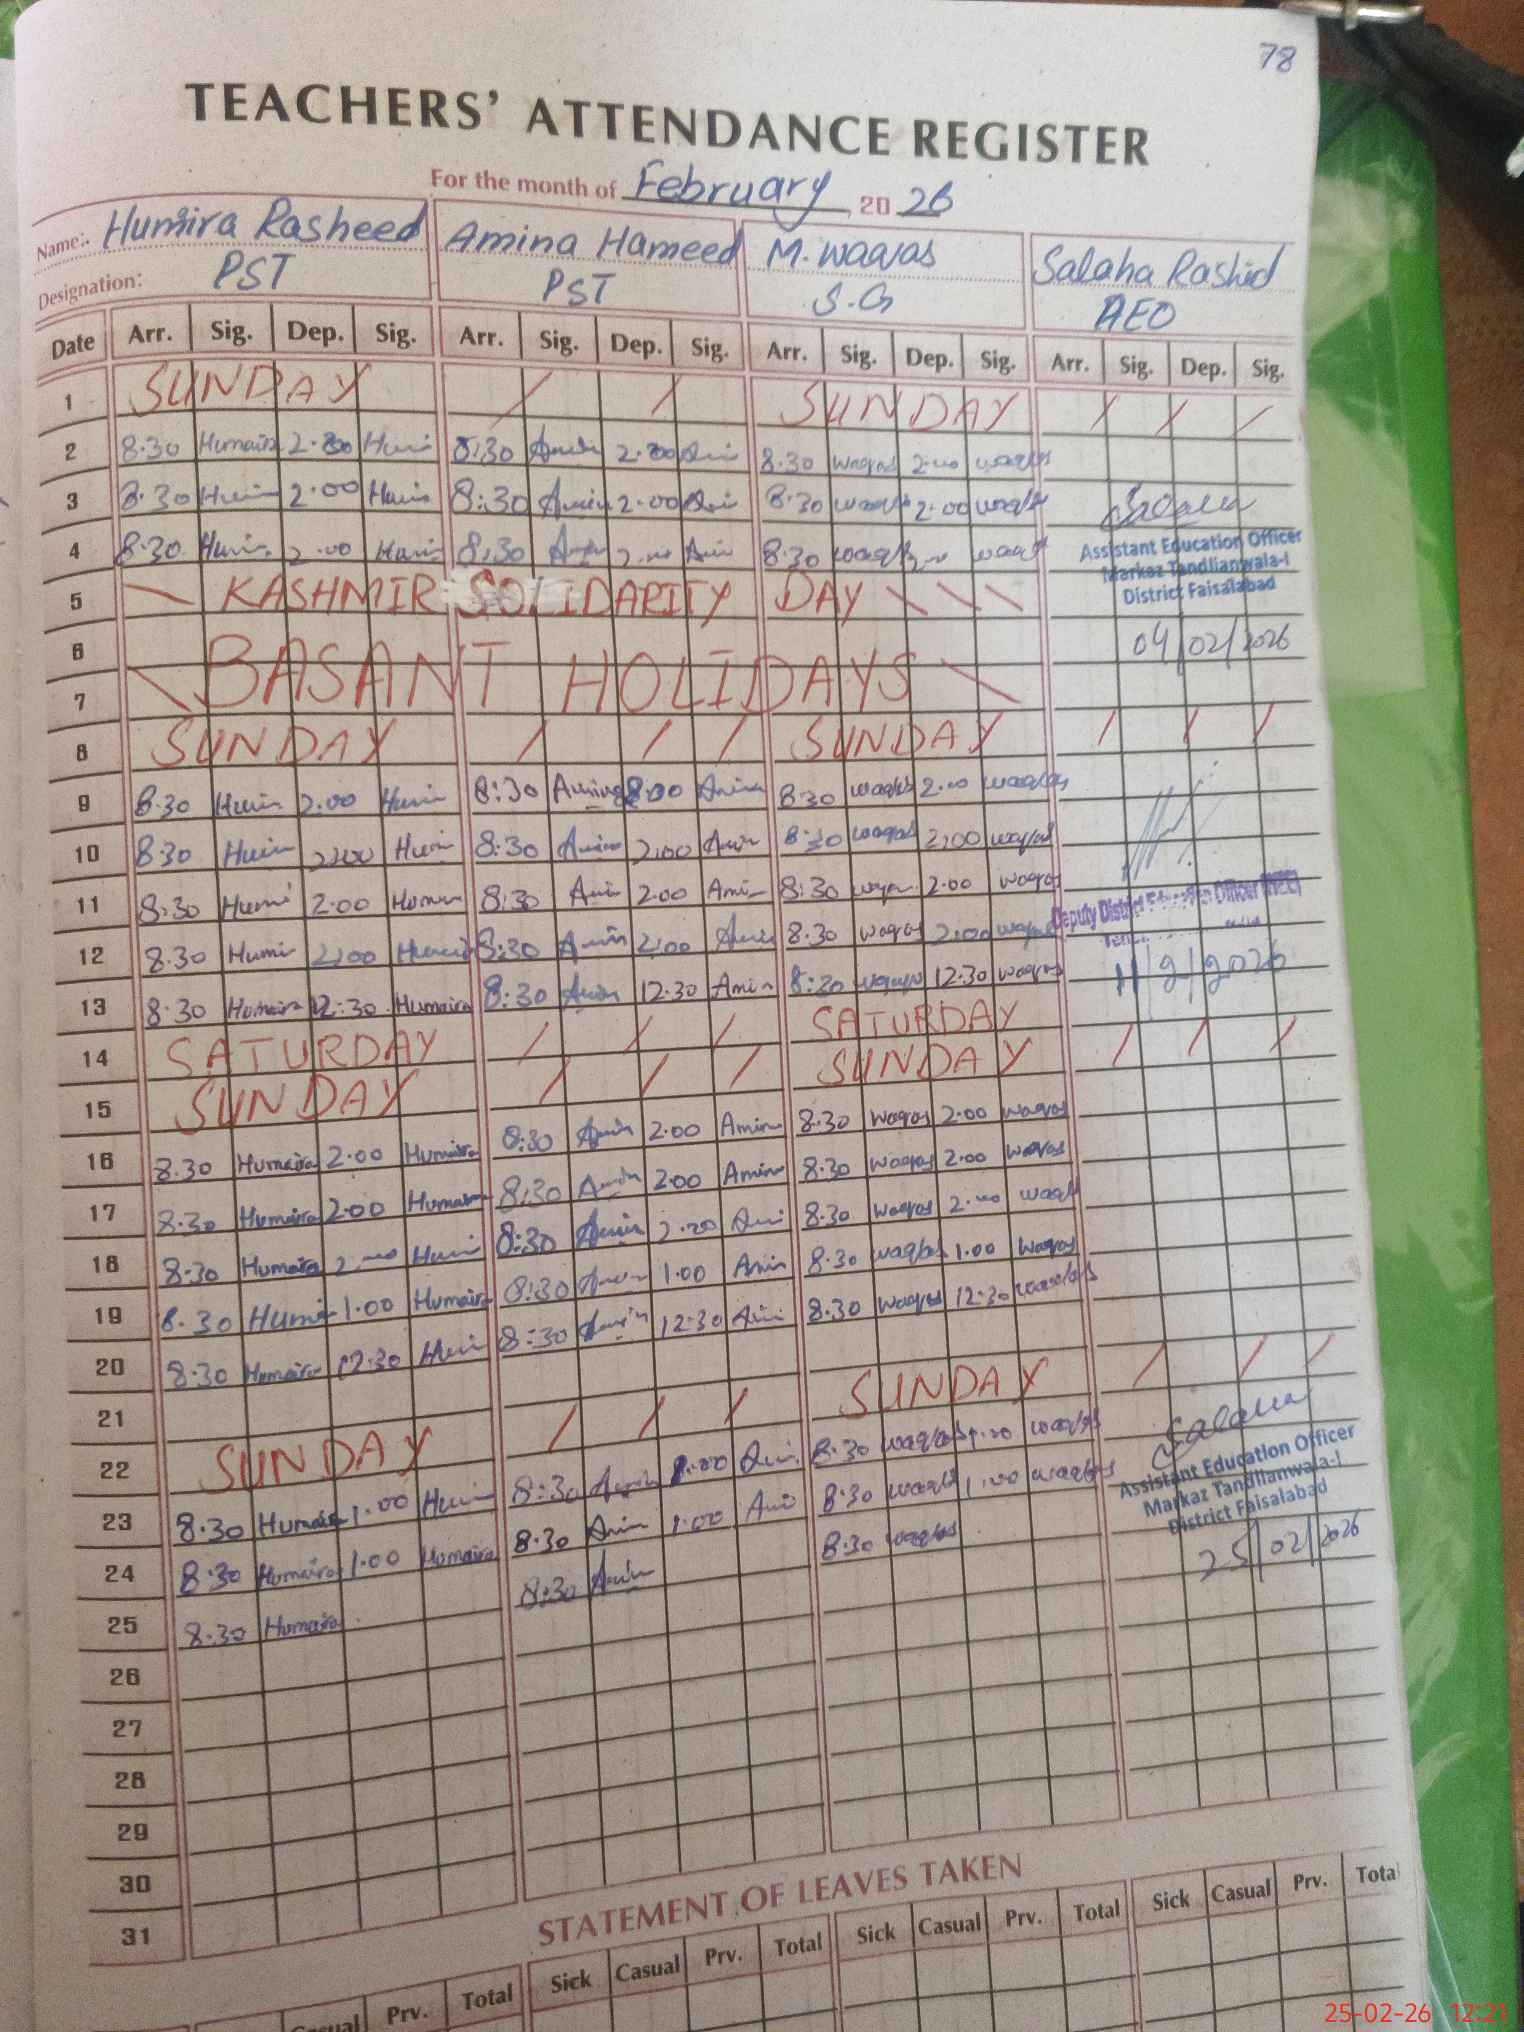 78
TEACHERS' ATTENDANCE REGISTER
For the month of February, 2026
Name:. Humira Rasheed Amina Hameed M. Waqas Salaha Rashid
Designation: PST PST S.G AEO
Date Arr. Sig. Dep. Sig. Arr. Sig. Dep. Sig. Arr. Sig. Dep. Sig. Arr. Sig. Dep. Sig.
1 SUNDAY / / SUNDAY / / /
2 8.30 Humaira 2.00 8:30 2.00 8.30 waqas 2.00 waqas
3 8.30 2.00 8:30 2.00 8.30 waqas 2.00 waqas
4 8.30 2.00 8:30 2.00 8:30 waqas waqas
Salaha
Assistant Education Officer
Markaz Tandlianwala-I
District Faisalabad
04/02/2026
5 \ KASHMIR SOLIDARITY DAY \ \ \
6
\ BASANT HOLIDAYS \
7
8 SUNDAY / / / SUNDAY / / /
9 8.30 2.00 8:30 Amina 2.00 Amina 8.30 waqas 2.00 waqas
10 8.30 2.00 8:30 2.00 8:30 waqas 2.00 waqas
11 8:30 Humi 2.00 8:30 Ami 2.00 Amin 8:30 2.00 waqas
12 8.30 Humi 2.00 8:30 Amin 2.00 8.30 waqas 2.00 waqas
Deputy District Education Officer
11/2/2026
13 8:30 Humaira 12:30 Humaira 8:30 Amin 12.30 Amin 8:30 waqas 12.30 waqas
14 SATURDAY / / / SATURDAY / / /
15 SUNDAY / / / SUNDAY
16 8.30 Humaira 2.00 Humaira 8:30 Amin 2.00 Amin 8:30 waqas 2.00 waqas
17 8:30 Humaira 2.00 Humaira 8:30 Amin 2.00 Amin 8.30 waqas 2.00 waqas
18 8:30 Humaira 8:30 Amin 8.30 waqas waqas
19 8.30 Humi 1.00 Humaira 8:30 1.00 Amin 8:30 waqas 1.00 waqas
20 8:30 Humaira 12:30 8:30 Amin 12:30 8.30 waqas 12:30 waqas
21
22 SUNDAY / / / SUNDAY / / /
23 8:30 Humaira 1.00 8:30 Amin 1.00 8:30 waqas 1.00 waqas
24 8:30 Humaira 1.00 Humaira 8:30 Amin 1.00 8:30 waqas 1.00 waqas
25 8.30 Humaira 8:30 Amin 8:30 waqas
Salaha
Assistant Education Officer
Markaz Tandlianwala-I
District Faisalabad
25/02/2026
26
27
28
29
30
31
STATEMENT OF LEAVES TAKEN
Prv. Total Sick Casual Prv. Total Sick Casual Prv. Total Sick Casual Prv. Tota
25-02-26 12:21